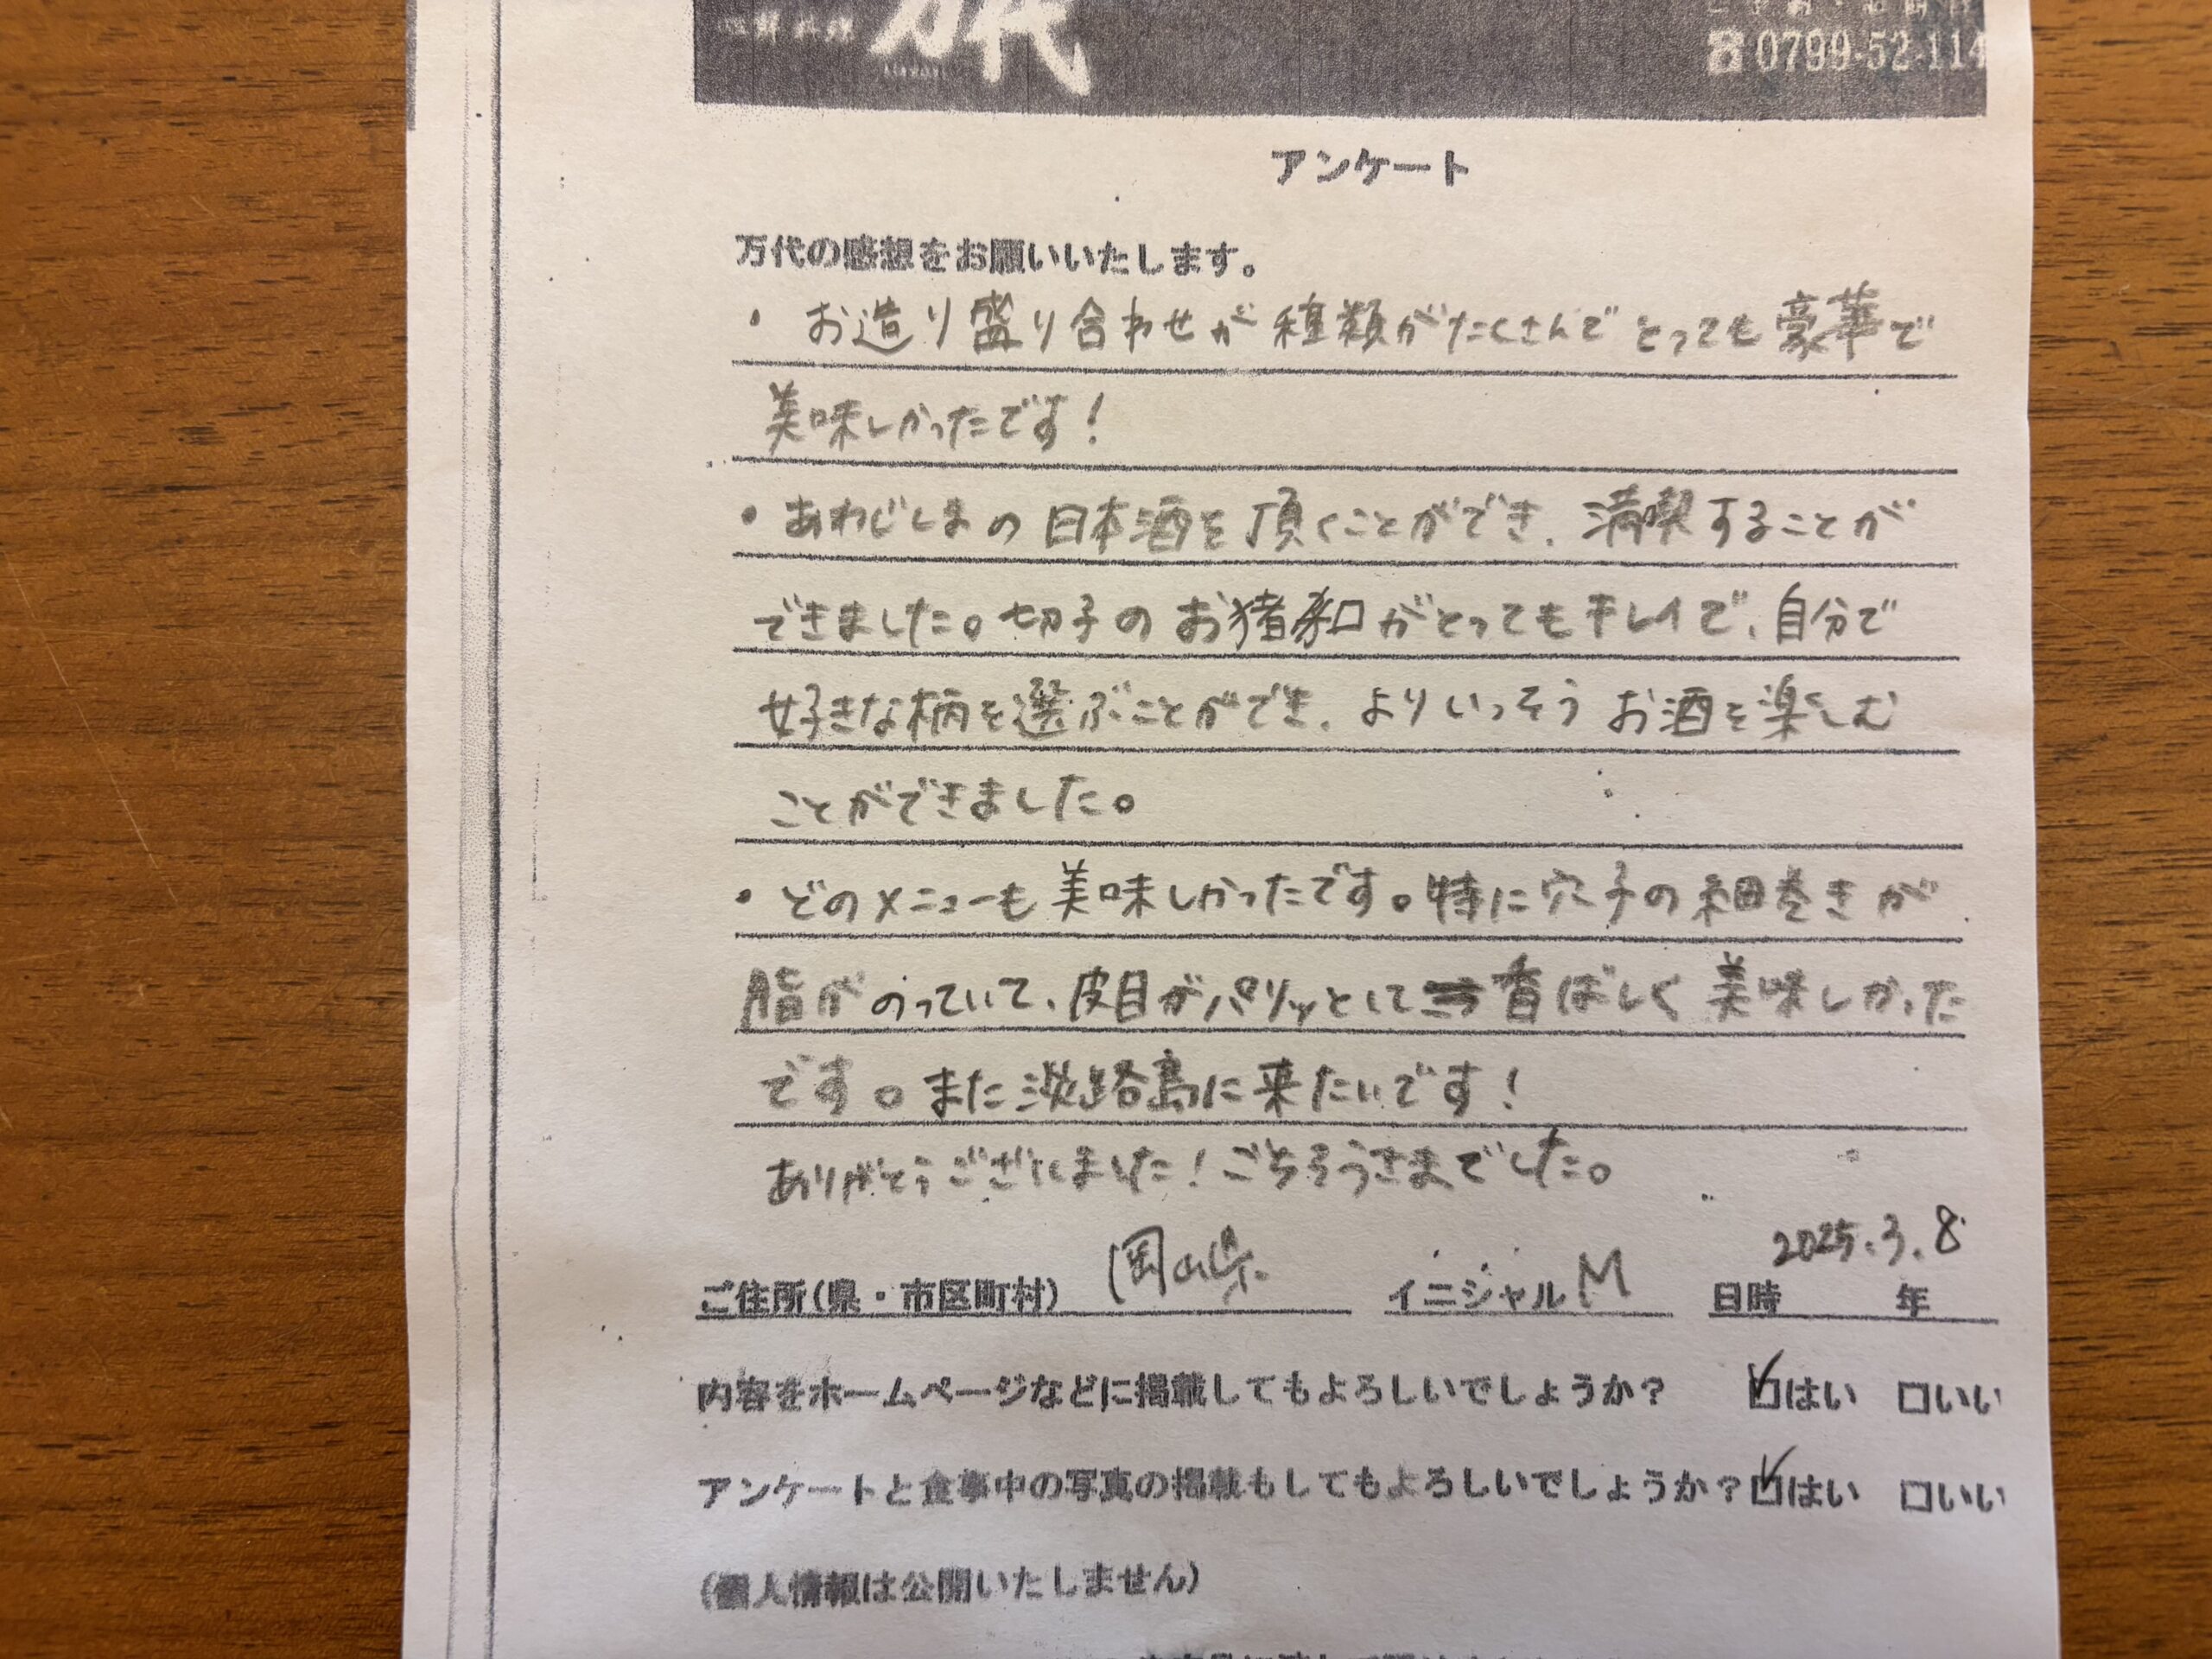 万代
☎0799-52-114
アンケート
万代の感想をお願いいたします。
・お造り盛り合わせが種類がたくさんでとっても豪華で
美味しかったです！
・あわじしまの日本酒を頂くことができ、満喫することが
できました。切子のお猪口がとってもキレイで、自分で
好きな柄を選ぶことができ、よりいっそうお酒を楽しむ
ことができました。
・どのメニューも美味しかったです。特に穴子の細巻きが
脂がのっていて、皮目がパリッとして香ばしく美味しかった
です。また淡路島に来たいです！
ありがとうございました！ごちそうさまでした。
2025.3.8
ご住所(県・市区町村) 岡山県 イニシャル M 日時 年
内容をホームページなどに掲載してもよろしいでしょうか？ ☑はい □いい
アンケートと食事中の写真の掲載もしてもよろしいでしょうか？☑はい □いい
(個人情報は公開いたしません)